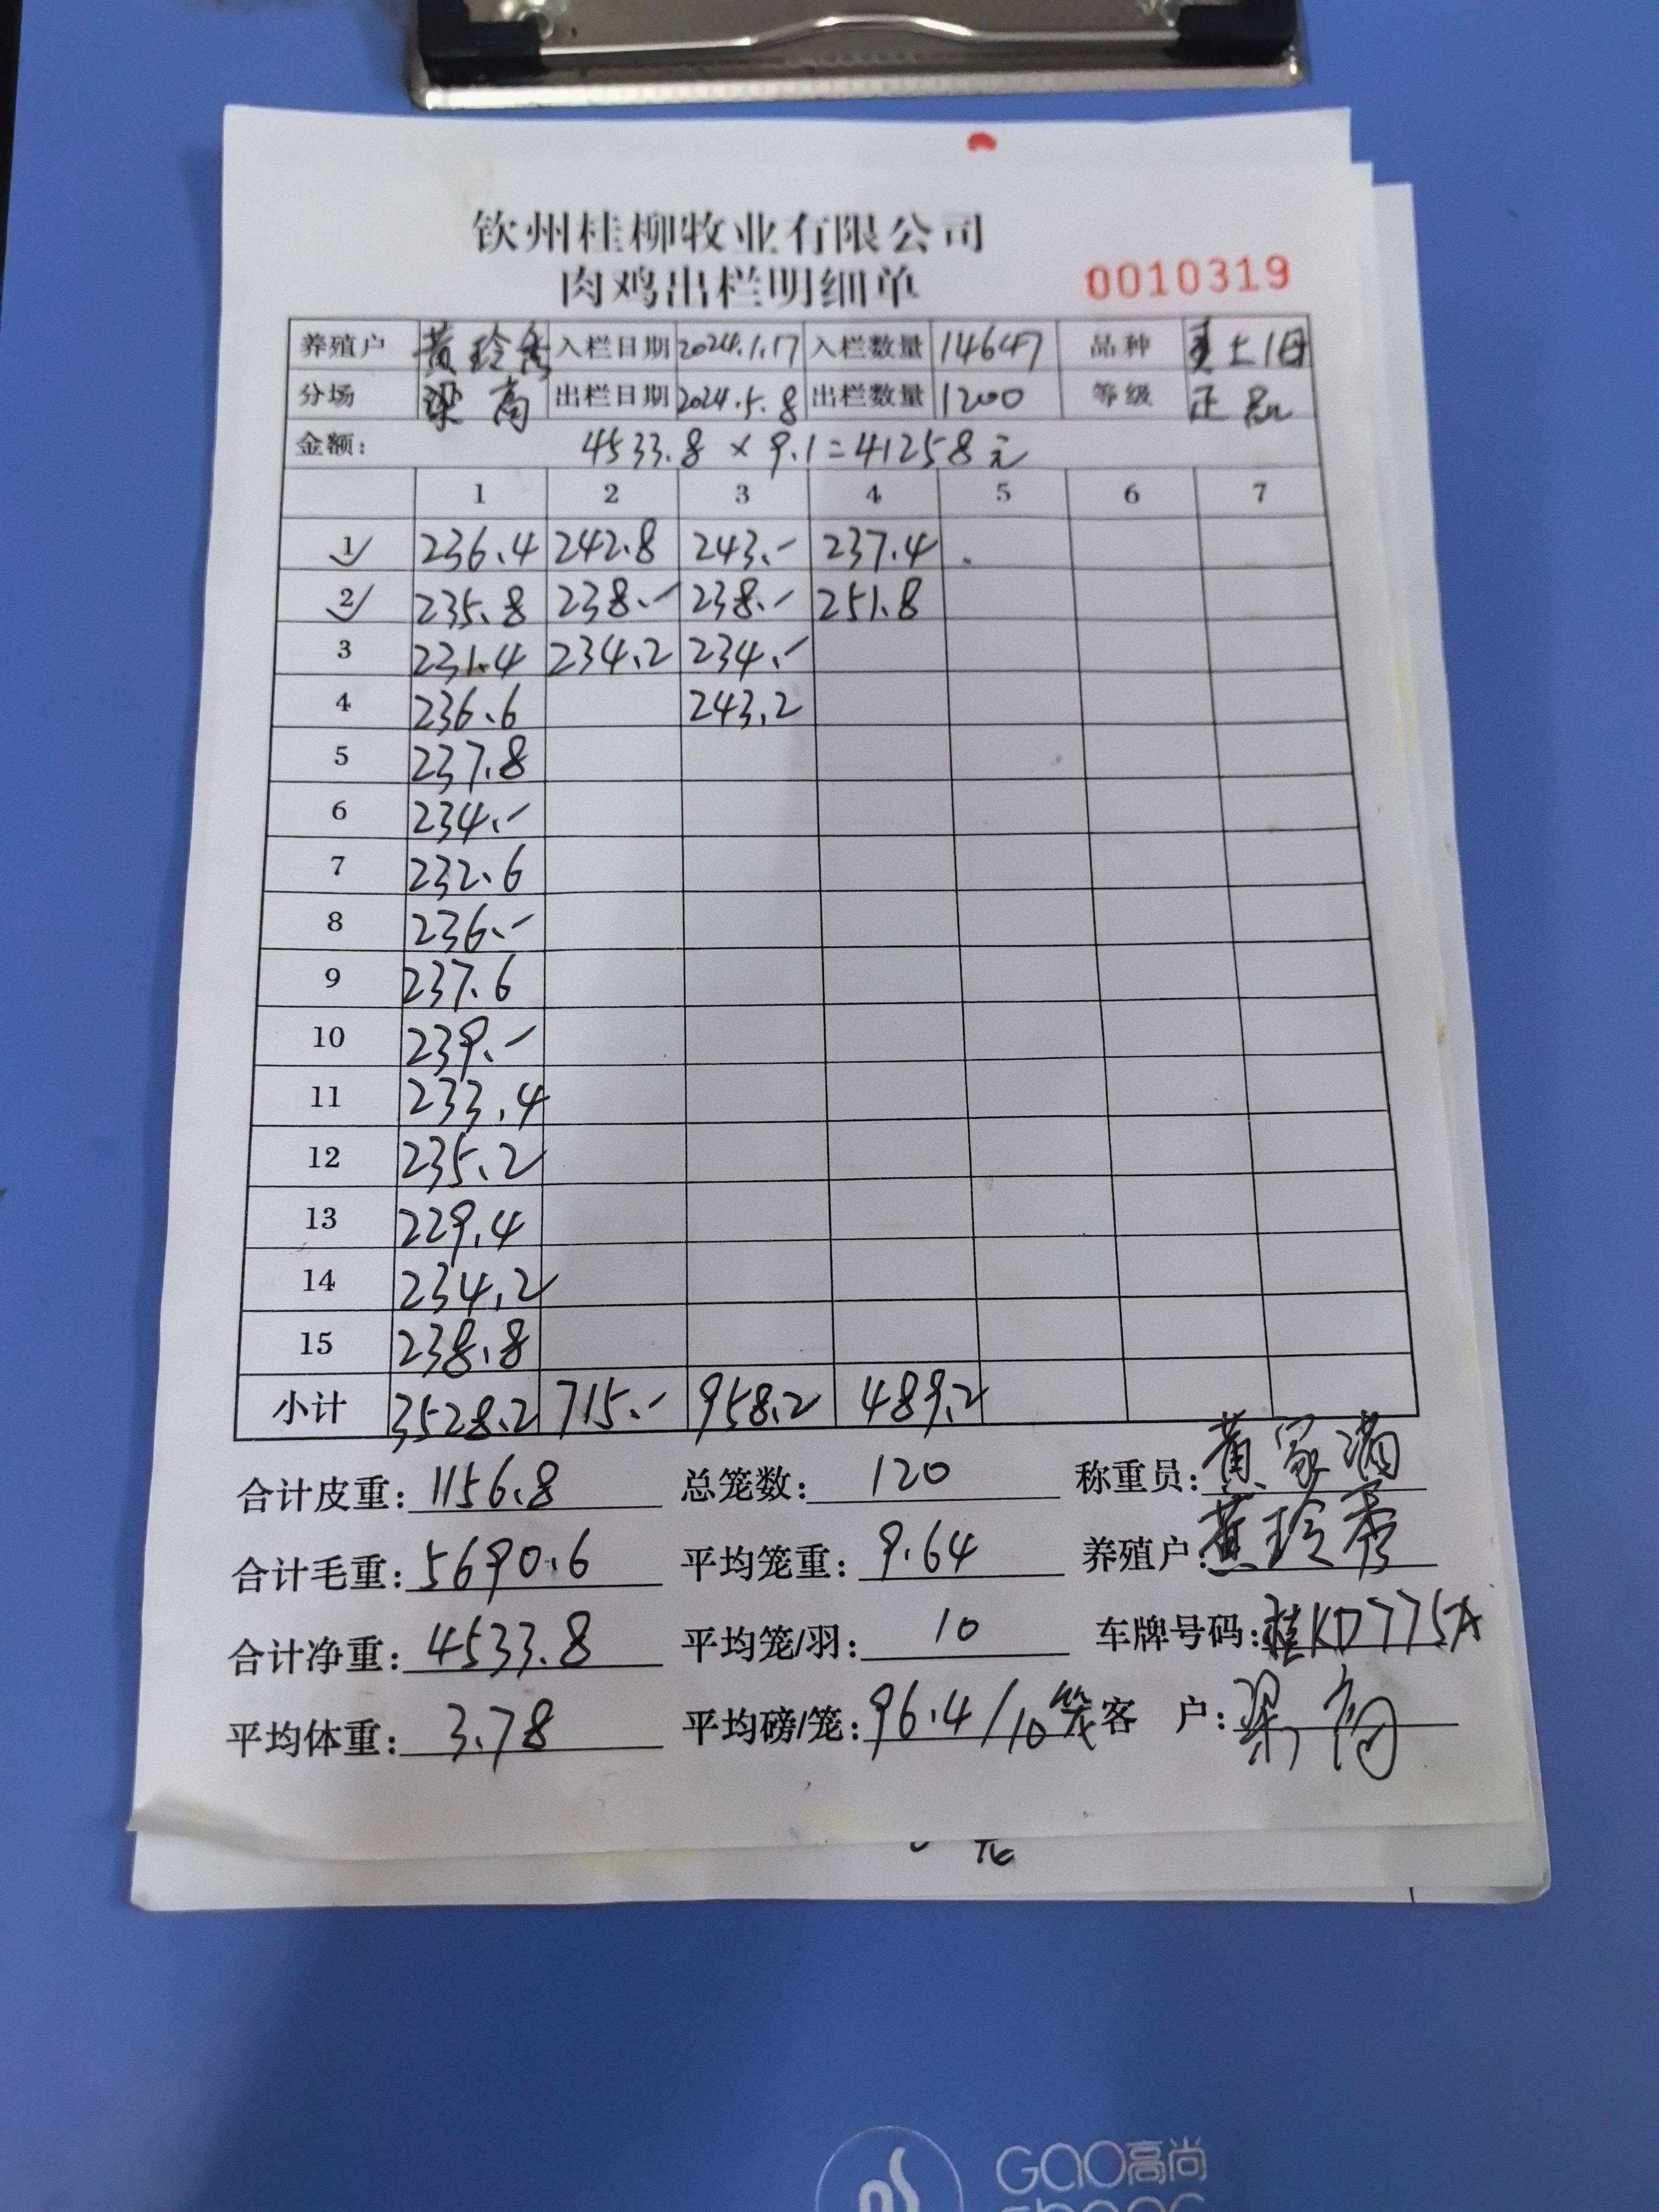 钦州桂柳牧业有限公司
肉鸡出栏明细单 0010319
养殖户 黄玲秀 入栏日期 2024.1.17 入栏数量 14647 品种 土1母
分场 梁高 出栏日期 2024.5.8 出栏数量 1200 等级 正品
金额: 4533.8 × 9.1 = 41258元
1 2 3 4 5 6 7
1 236.4 242.8 243.- 237.4
2 235.8 238.- 238.- 251.8
3 231.4 234.2 234.-
4 236.6 243.2
5 237.8
6 234.-
7 232.6
8 236.-
9 237.6
10 239.-
11 233.4
12 235.2
13 229.4
14 234.2
15 238.8
小计 3528.2 715.- 958.2 489.2
合计皮重: 1156.8 总笼数: 120 称重员: 黄家满
合计毛重: 5690.6 平均笼重: 9.64 养殖户: 黄玲秀
合计净重: 4533.8 平均笼/羽: 10 车牌号码: 桂KD775A
平均体重: 3.78 平均磅/笼: 96.4/10笼 客 户: 梁高
GAO高尚